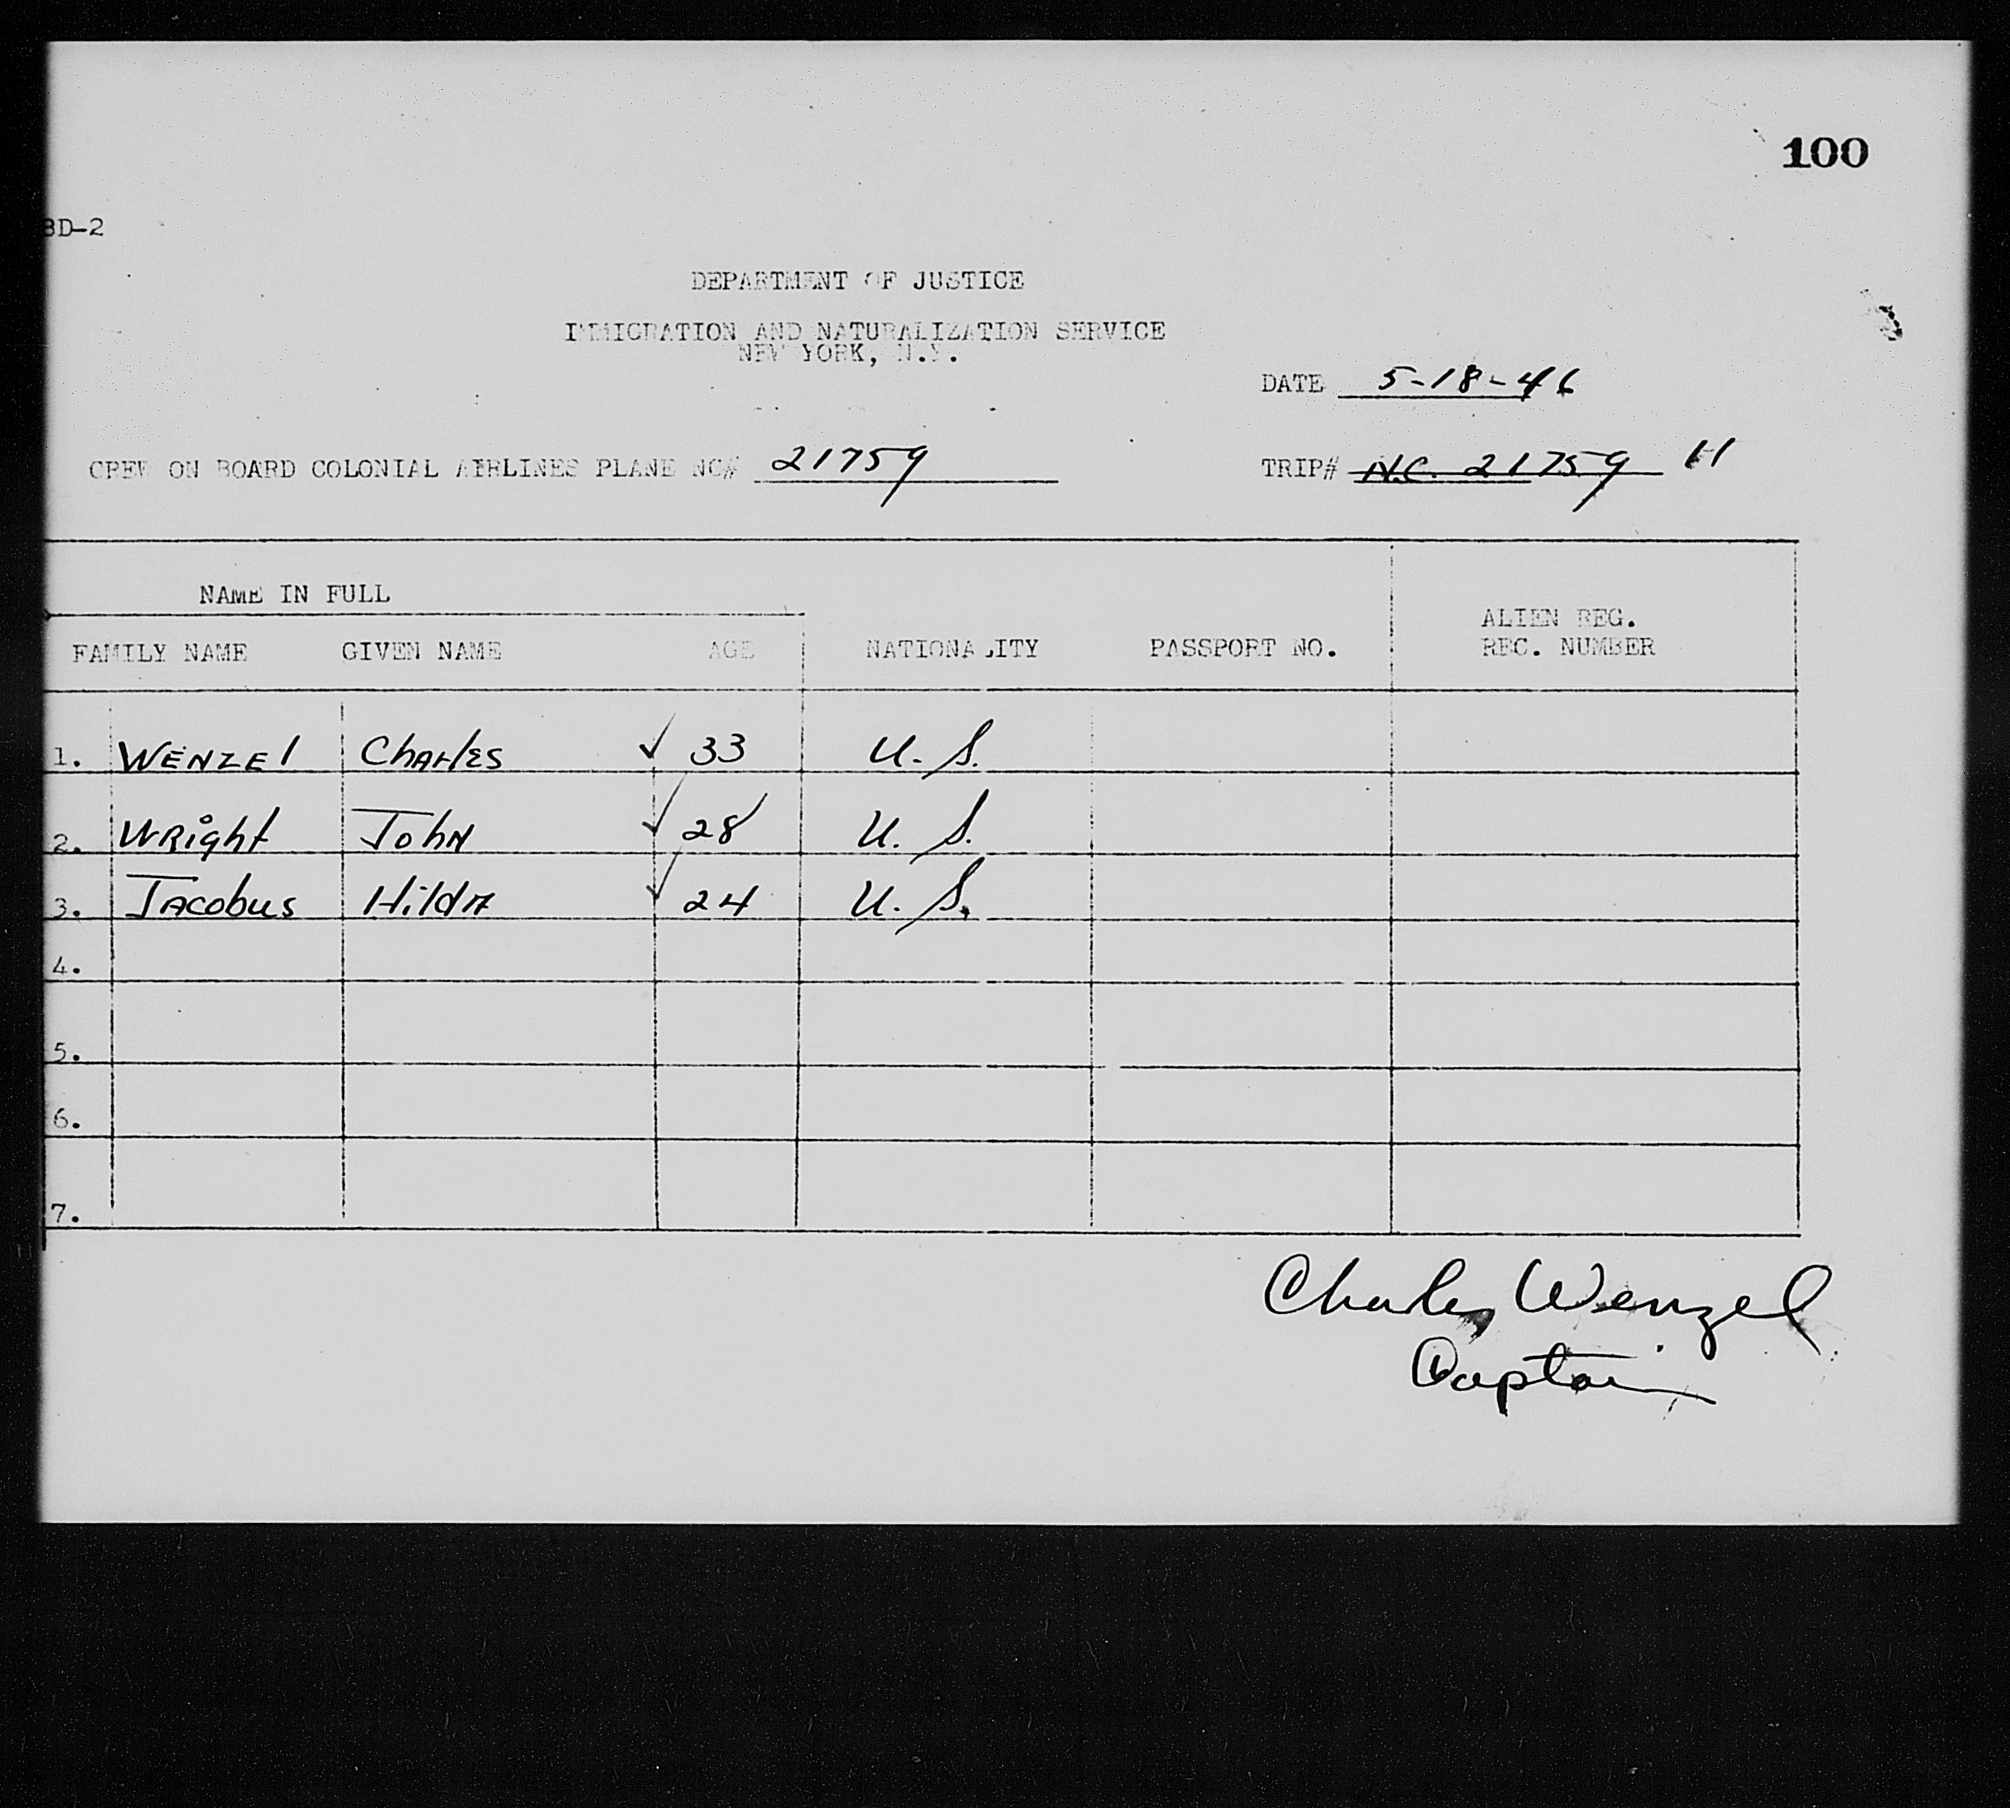 100
BD-2
DEPARTMENT OF JUSTICE
IMMIGRATION AND NATURALIZATION SERVICE
NEW YORK, N.Y.
DATE 5-18-46
CREW ON BOARD COLONIAL AIRLINES PLANE NC# 21759
TRIP# N.C. 21759 11
NAME IN FULL
FAMILY NAME GIVEN NAME AGE NATIONALITY PASSPORT NO. ALIEN REG. REC. NUMBER
1. WENZEl ChARlES ✓ 33 U.S.
2. WRight JohN ✓ 28 U.S.
3. JACobus HildA ✓ 24 U.S.
4.
5.
6.
7.
Charles Wenzel
Captain